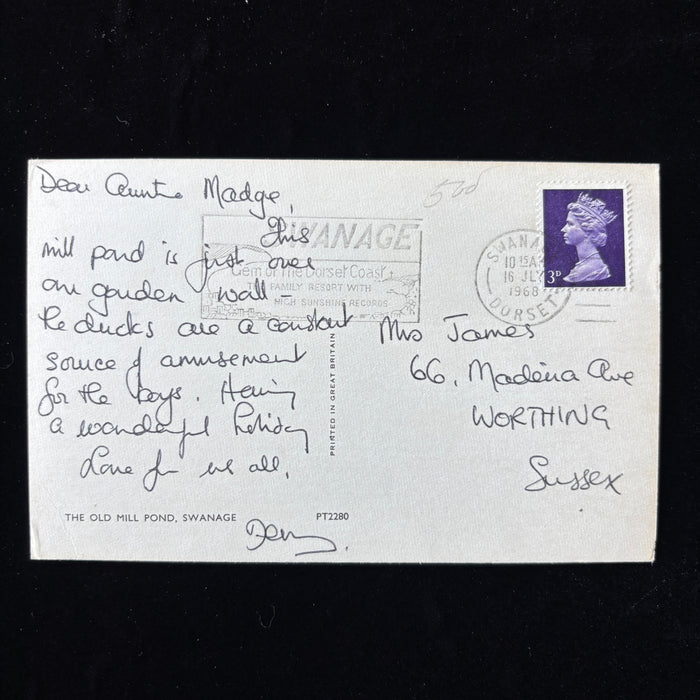 Dear Auntie Madge,
This
mill pond is just over
our garden wall –
the ducks are a constant
source of amusement
for the boys. Having
a wonderful holiday
Love from us all,
THE OLD MILL POND, SWANAGE
PT2280
PRINTED IN GREAT BRITAIN
SWANAGE
Gem of the Dorset Coast
THE FAMILY RESORT WITH
HIGH SUNSHINE RECORDS
SWANA
10 15A
16 JLY
1968
DORSET
3D
Mrs James
66, Madeira Ave
WORTHING
Sussex